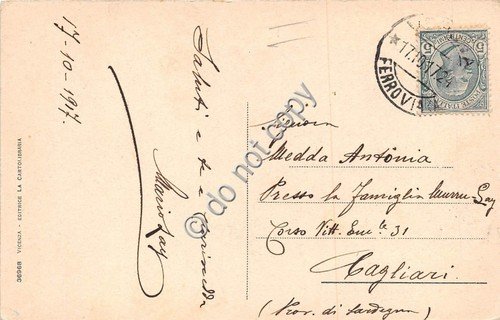 17-10-1917.
Saluti e
Mario Lay
36968 VICENZA - EDITRICE LA CARTOLIBRARIA
do not copy
17.10.17
FERROVIA
POSTE ITALIANE
5
Signora
Medda Antonia
Presso la Famiglia Murru-Lay
Corso Vitt. Em.le 31
Cagliari.
(Prov. di Sardegna)